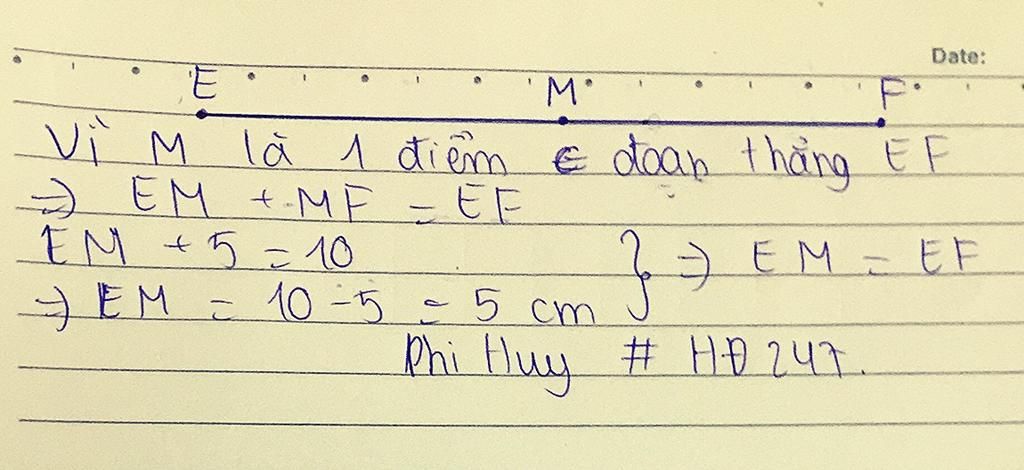 Date:
E M F
Vì M là 1 điểm ∈ đoạn thẳng EF
=> EM + MF = EF
EM + 5 = 10
=> EM = 10 - 5 = 5 cm } => EM = EF
Phi Huy # HĐ 247.